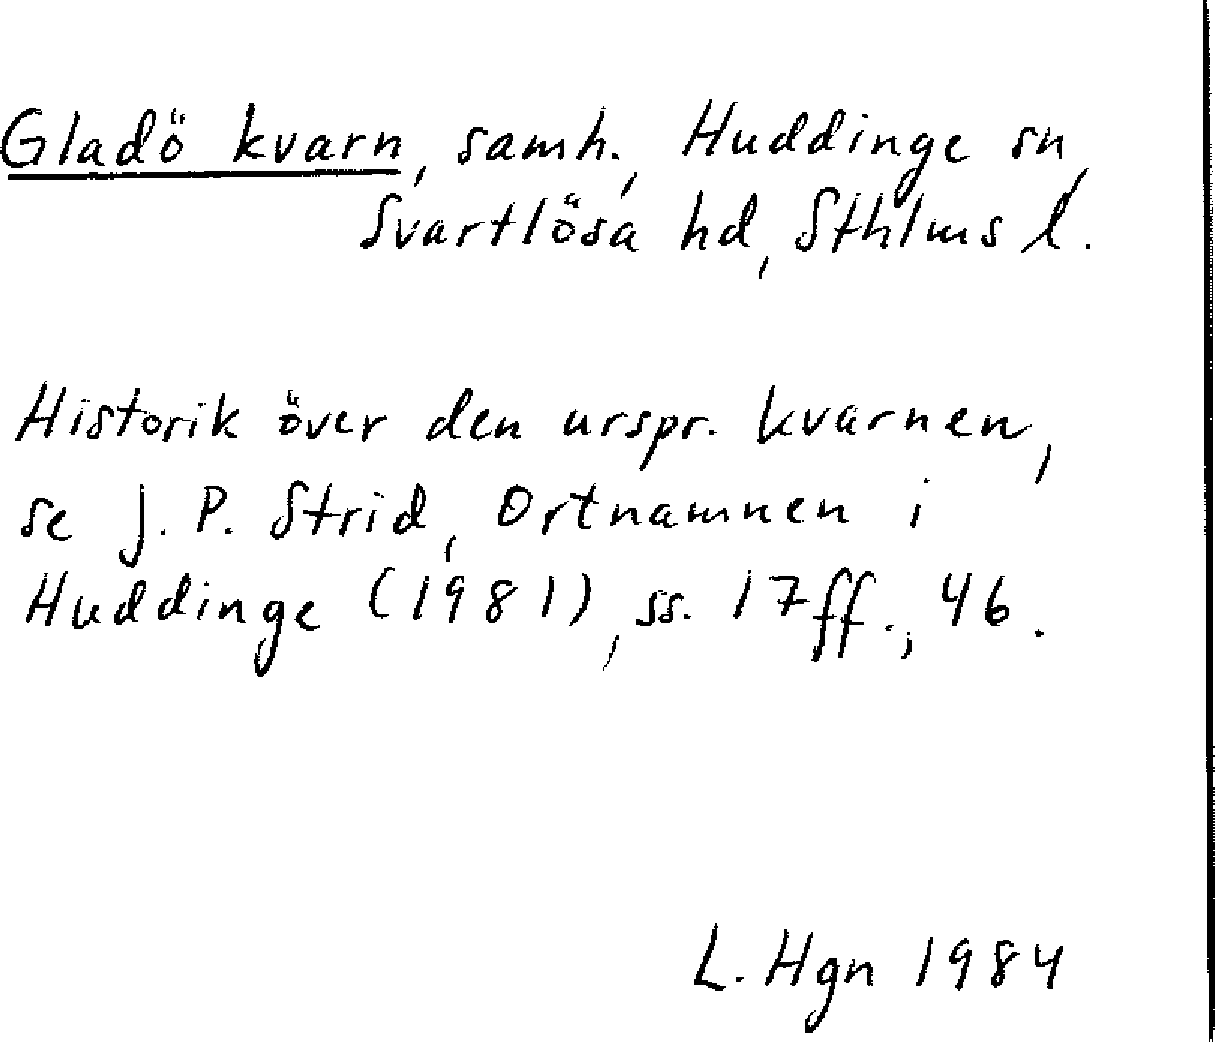 Gladö kvarn, samh., Huddinge sn,
Svartlösa hd, Sthlms l.
Historik över den urspr. kvarnen,
se J. P. Strid, Ortnamnen i
Huddinge (1981), ss. 17ff., 46.
L. Hgn 1984